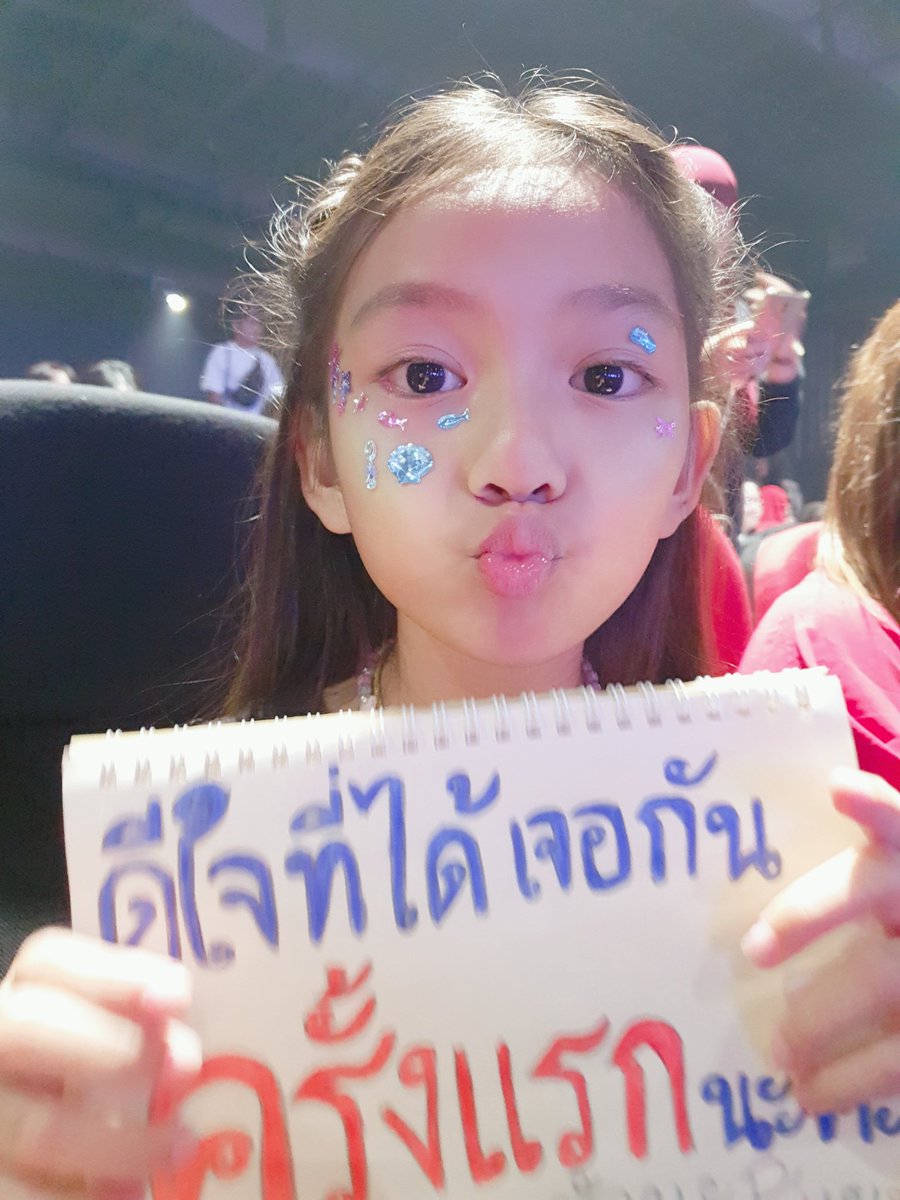 ดีใจที่ได้เจอกัน
ครั้งแรกนะคะ